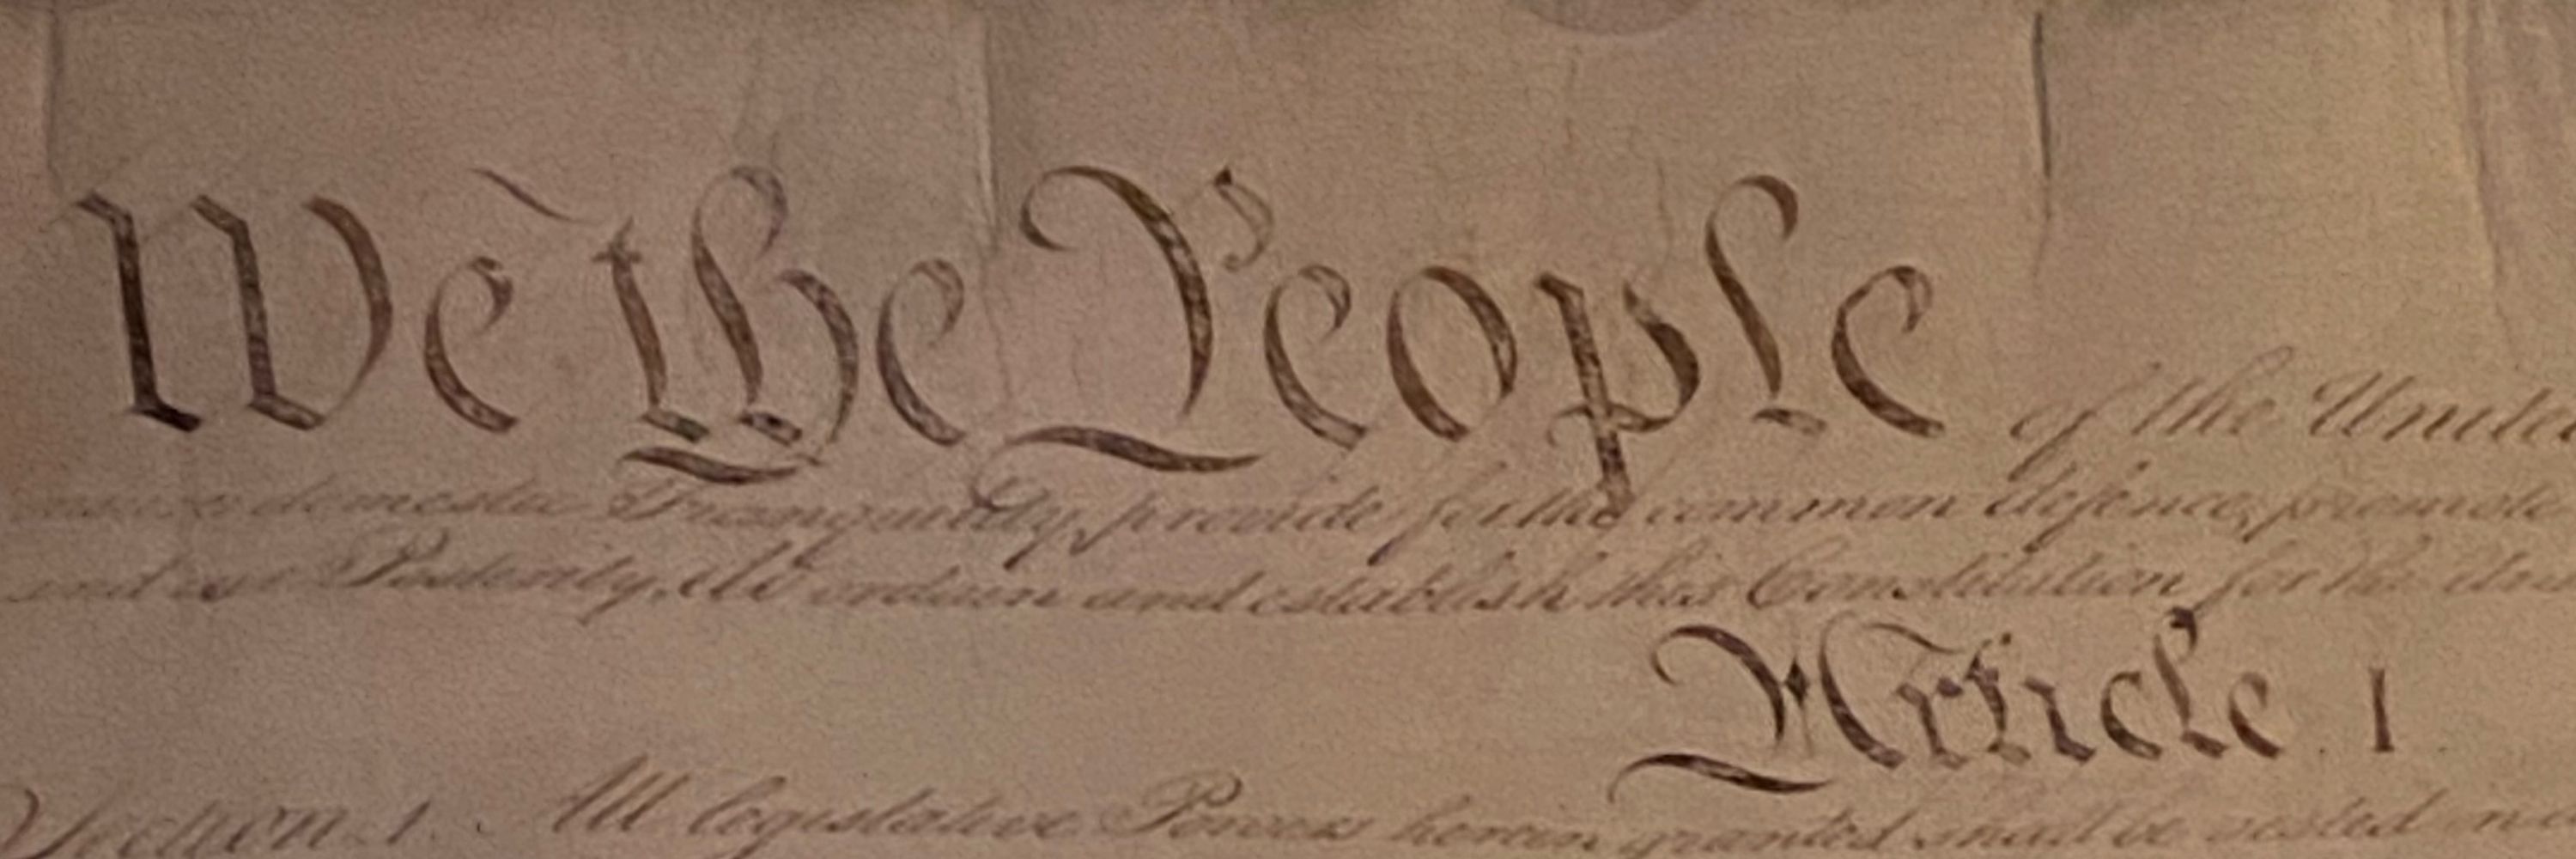 We the People of the United
insure domestic Tranquility, provide for the common defence, promote
and our Posterity, do ordain and establish this Constitution for the Uni
Article. I.
Section. 1. All legislative Powers herein granted shall be vested in a